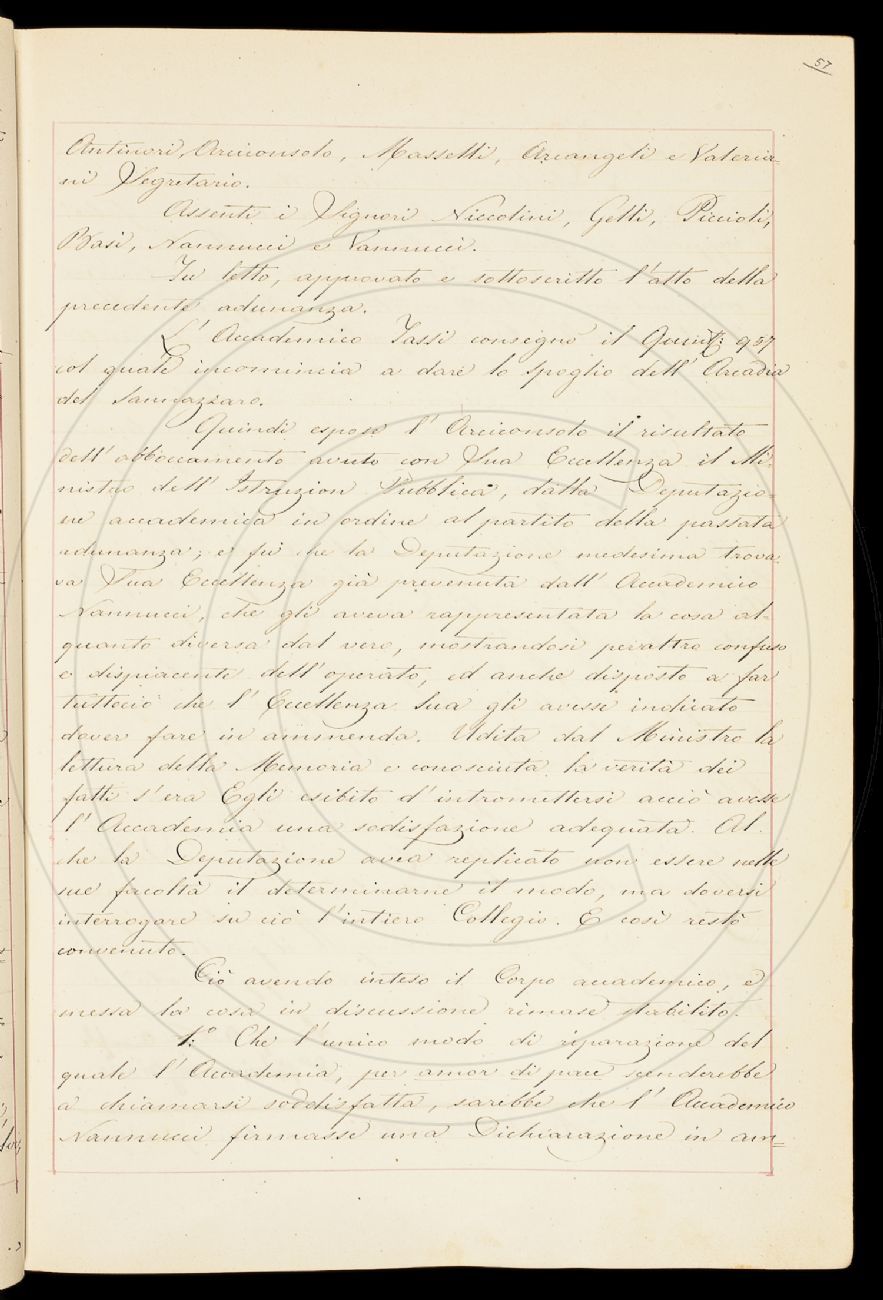 57
Antinori, Arciconsolo, Masselli, Arcangeli e Valeria=
ni Segretario.
Assenti i Signori Niccolini, Gelli, Piccioli,
Basi, Nannucci e Vannucci.
Fu letto, approvato e sottoscritto l'atto della
precedente adunanza.
L'Accademico Tassi consegnò il Quint: 957
col quale incomincia a dare lo spoglio dell'Arcadia
del Sannazzaro.
Quindi espose l'Arciconsolo il risultato
dell'abboccamento avuto con Sua Eccellenza il Mi=
nistro dell'Istruzion Pubblica, dalla Deputazio=
ne accademica in ordine al partito della passata
adunanza; e fu che la Deputazione medesima trova=
va Sua Eccellenza già prevenuta dall'Accademico
Nannucci, che gli aveva rappresentata la cosa al=
quanto diversa dal vero, mostrandosi peraltro confuso
e dispiacente dell'operato, ed anche disposto a far
tuttociò che l'Eccellenza Sua gli avesse indicato
dover fare in ammenda. Udita dal Ministro la
lettura della Memoria e conosciuta la verità dei
fatti s'era Egli esibito d'intromettersi acciò avesse
l'Accademia una sodisfazione adeguata. Al
che la Deputazione avea replicato non essere nelle
sue facoltà il determinarne il modo, ma doversi
interrogare su ciò l'intiero Collegio. E così restò
convenuto.
Ciò avendo inteso il Corpo accademico, e
messa la cosa in discussione rimase stabilito.
1:° Che l'unico modo di riparazione del
quale l'Accademia, per amor di pace scenderebbe
a chiamarsi soddisfatta, sarebbe che l'Accademico
Nannucci firmasse una Dichiarazione in am=